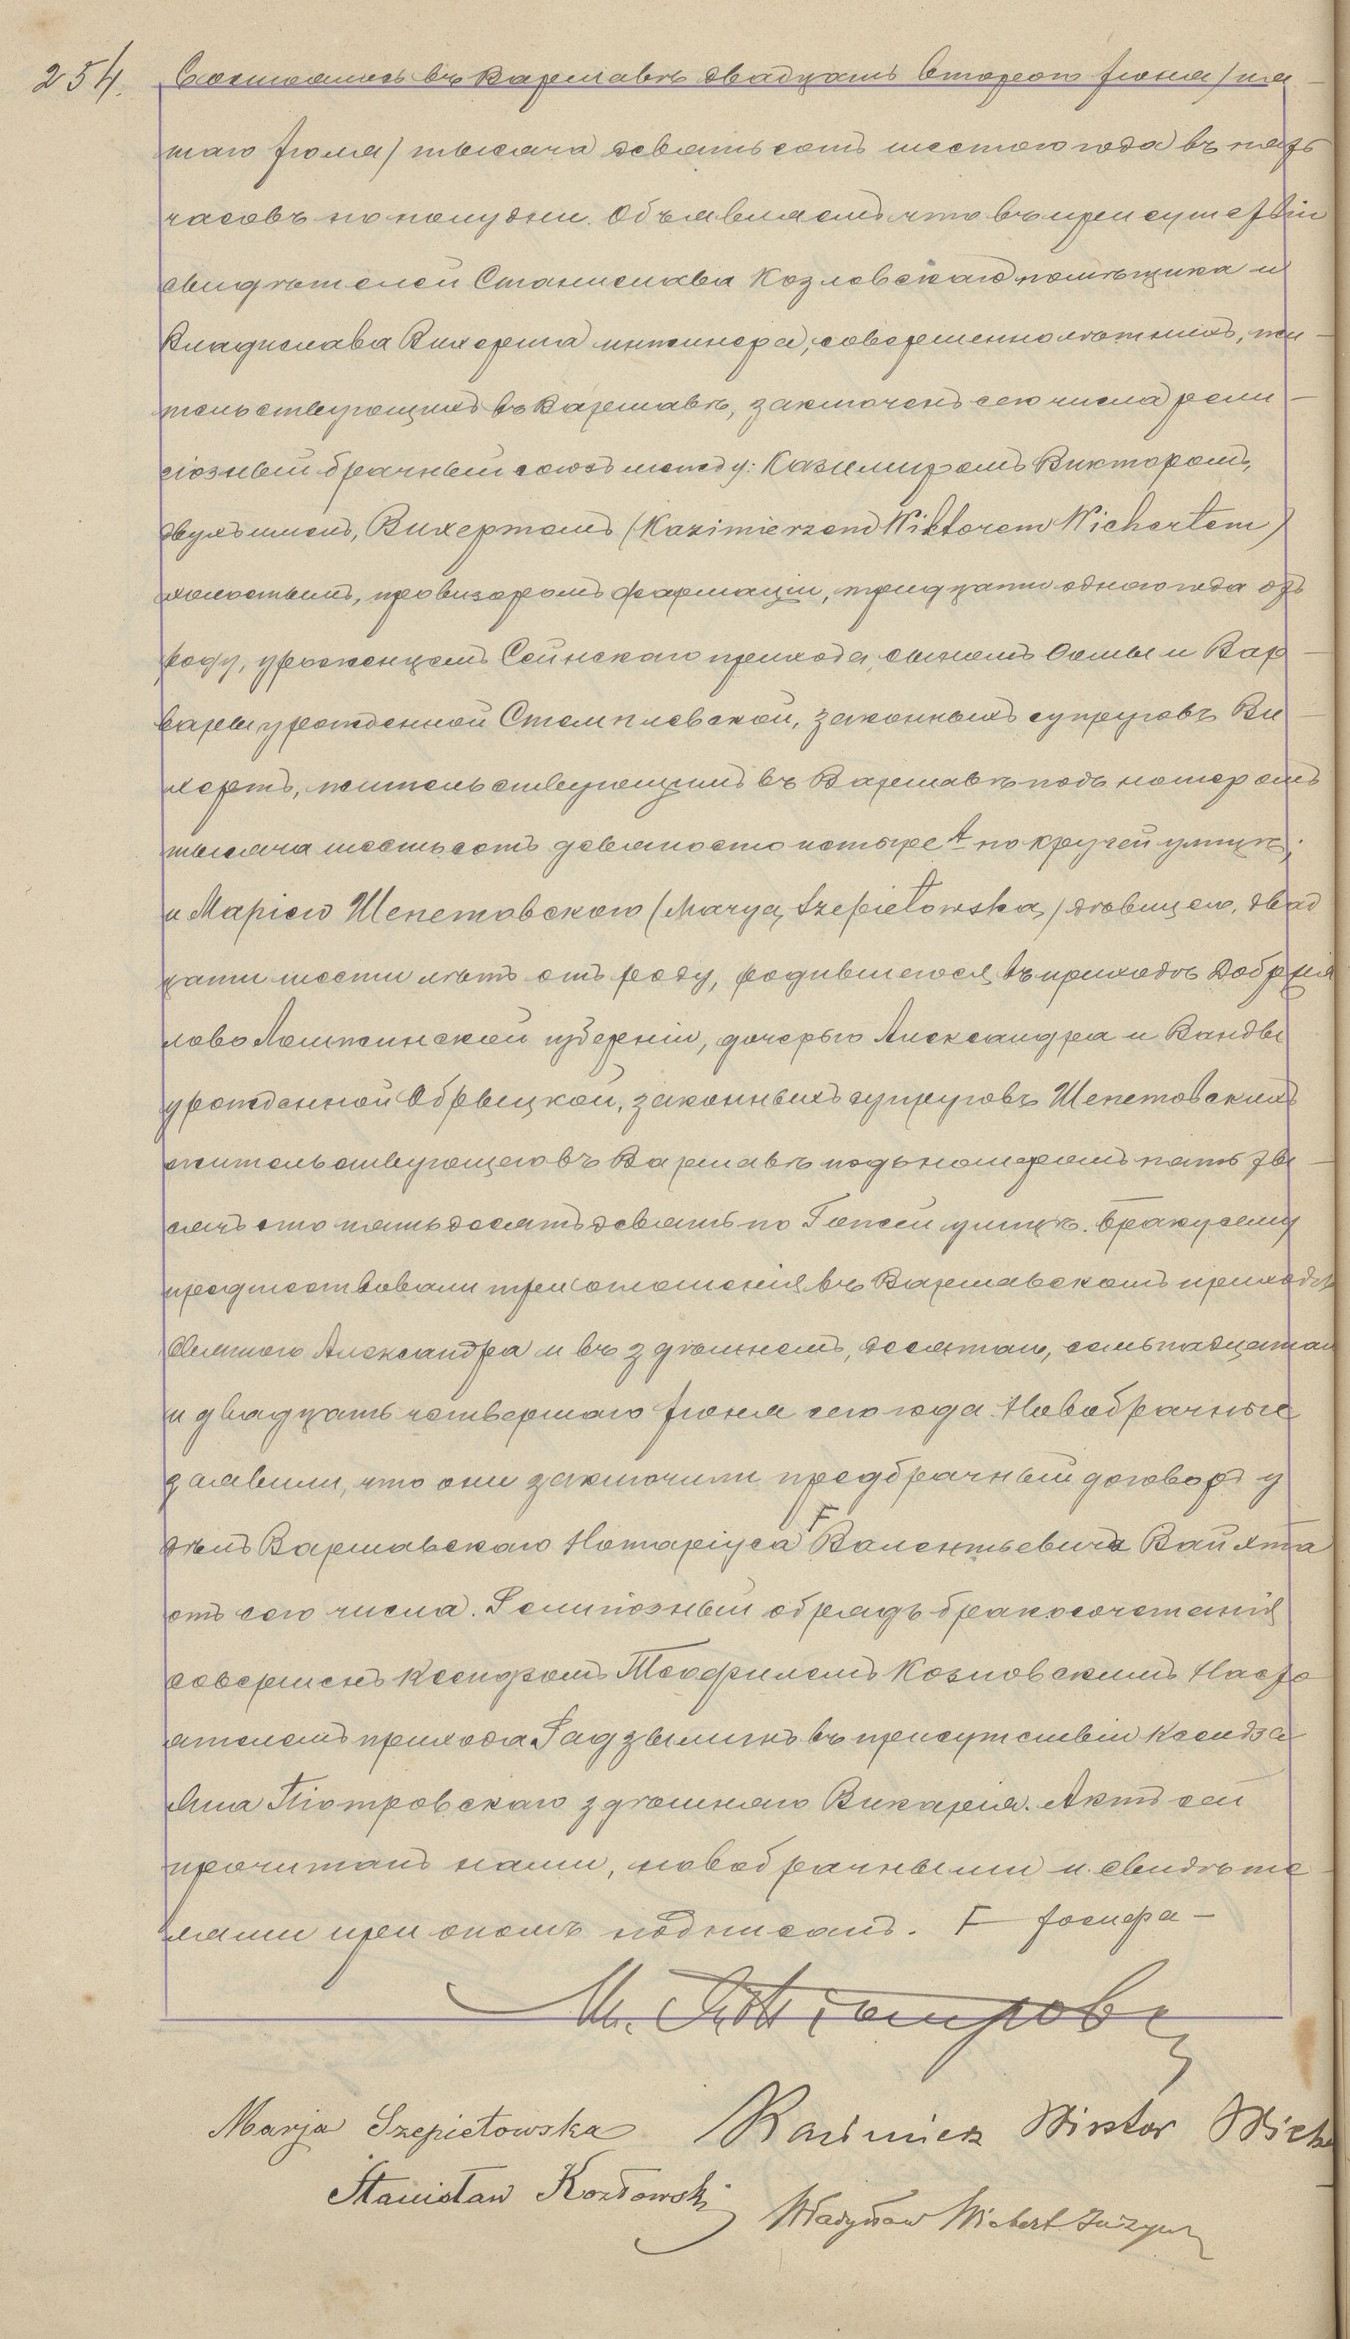 254. Состоялось въ Варшавѣ двадцать второго Іюня /пя-
таго Іюля/ тысяча девятьсотъ шестого года въ пять
часовъ по полудни. Объявляемъ что въ присутствіи
свидѣтелей Станислава Козловскаго помѣщика и
Владислава Вихерта инженера, совершеннолѣтнихъ, жи-
тельствующихъ въ Варшавѣ, заключенъ сего числа рели-
гіозный брачный союзъ между: Казимиромъ Викторомъ,
двухъ именъ, Вихертомъ (Kazimierzem Wiktorem Wichertem)
холостымъ, провизоромъ фармаціи, тридцати одного года отъ
роду, уроженцемъ Сейнскаго прихода, сыномъ Ѳомы и Вар-
вары урожденной Стемплевской, законныхъ супруговъ Ви-
хертъ, жительствующимъ въ Варшавѣ подъ номеромъ
тысяча шестьсотъ девяносто четыре А по кручей улицѣ;
и Маріею Шепетовскою (Maryą Szepietowską) дѣвицею, двад
цати шести лѣтъ отъ роду, родившеюся въ приходѣ Добржія
лово Ломжинской губерніи, дочерью Александра и Ванды
урожденной Обрыцкой, законныхъ супруговъ Шепетовскихъ
жительствующею въ Варшавѣ подъ номеромъ пять ты-
сячъ сто пятьдесятъ девять по Гожей улицѣ. Браку сему
предшествовали три оглашенія въ Варшавскомъ приходѣ
Святого Александра и въ здѣшнемъ, десятаго, семьнадцатаго
и двадцать четвертаго Іюня сего года. Новобрачные
заявили, что они заключили предбрачный договоръ у
дѣлъ Варшавскаго Нотаріуса F Валентьевича Вайхта
отъ сего числа. Религіозный обрядъ бракосочетанія
совершенъ Ксендзомъ Теофилемъ Козловскимъ Насто
ятелемъ прихода Радзыминъ въ присутствіи Ксендза
Яна Піотровскаго здѣшняго Викарія. Актъ сей
прочитанъ нами, новобрачными и свидѣте-
лями при ономъ подписанъ. F Іосифа —
Marja Szepietowska Kazimierz Wiktor Wiche
Stanisław Kozłowski Władysław Wichert